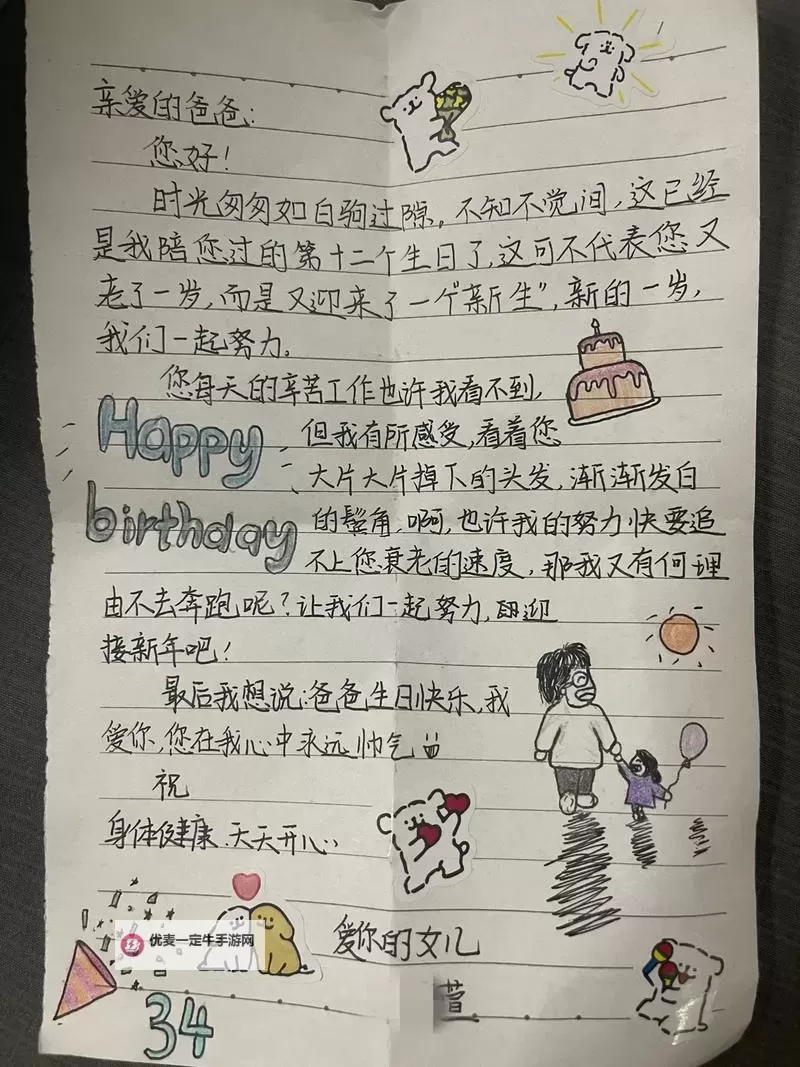 亲爱的爸爸:
您好!
时光匆匆如白驹过隙,不知不觉间,这已经
是我陪您过的第十二个生日了,这可不代表您又
老了一岁,而是又迎来了一个“新生”,新的一岁,
我们一起努力。
您每天的辛苦工作也许我看不到,
但我有所感受,看着您
Happy
大片大片掉下的头发,渐渐发白
的鬓角,啊,也许我的努力快要追
birthday
不上您衰老的速度,那我又有何理
由不去奔跑呢?让我们一起努力,迎
接新年吧!
最后我想说:爸爸生日快乐,我
爱你,您在我心中永远帅气
祝
身体健康、天天开心
爱你的女儿
萱
优麦一定牛手游网
34